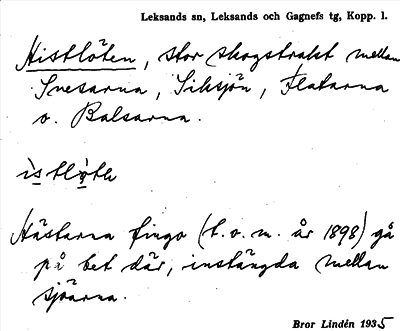 Leksands sn, Leksands och Gagnefs tg, Kopp. l.
Histlöten, stor skogstrakt mellan
Snesarna, Siksjön, Flatarna
o. Balsarna.
ìstlò̤tn
Hästarna fingo (t.o.m. år 1898) gå
på bet där, instängda mellan
sjöarna.
Bror Lindén 1935